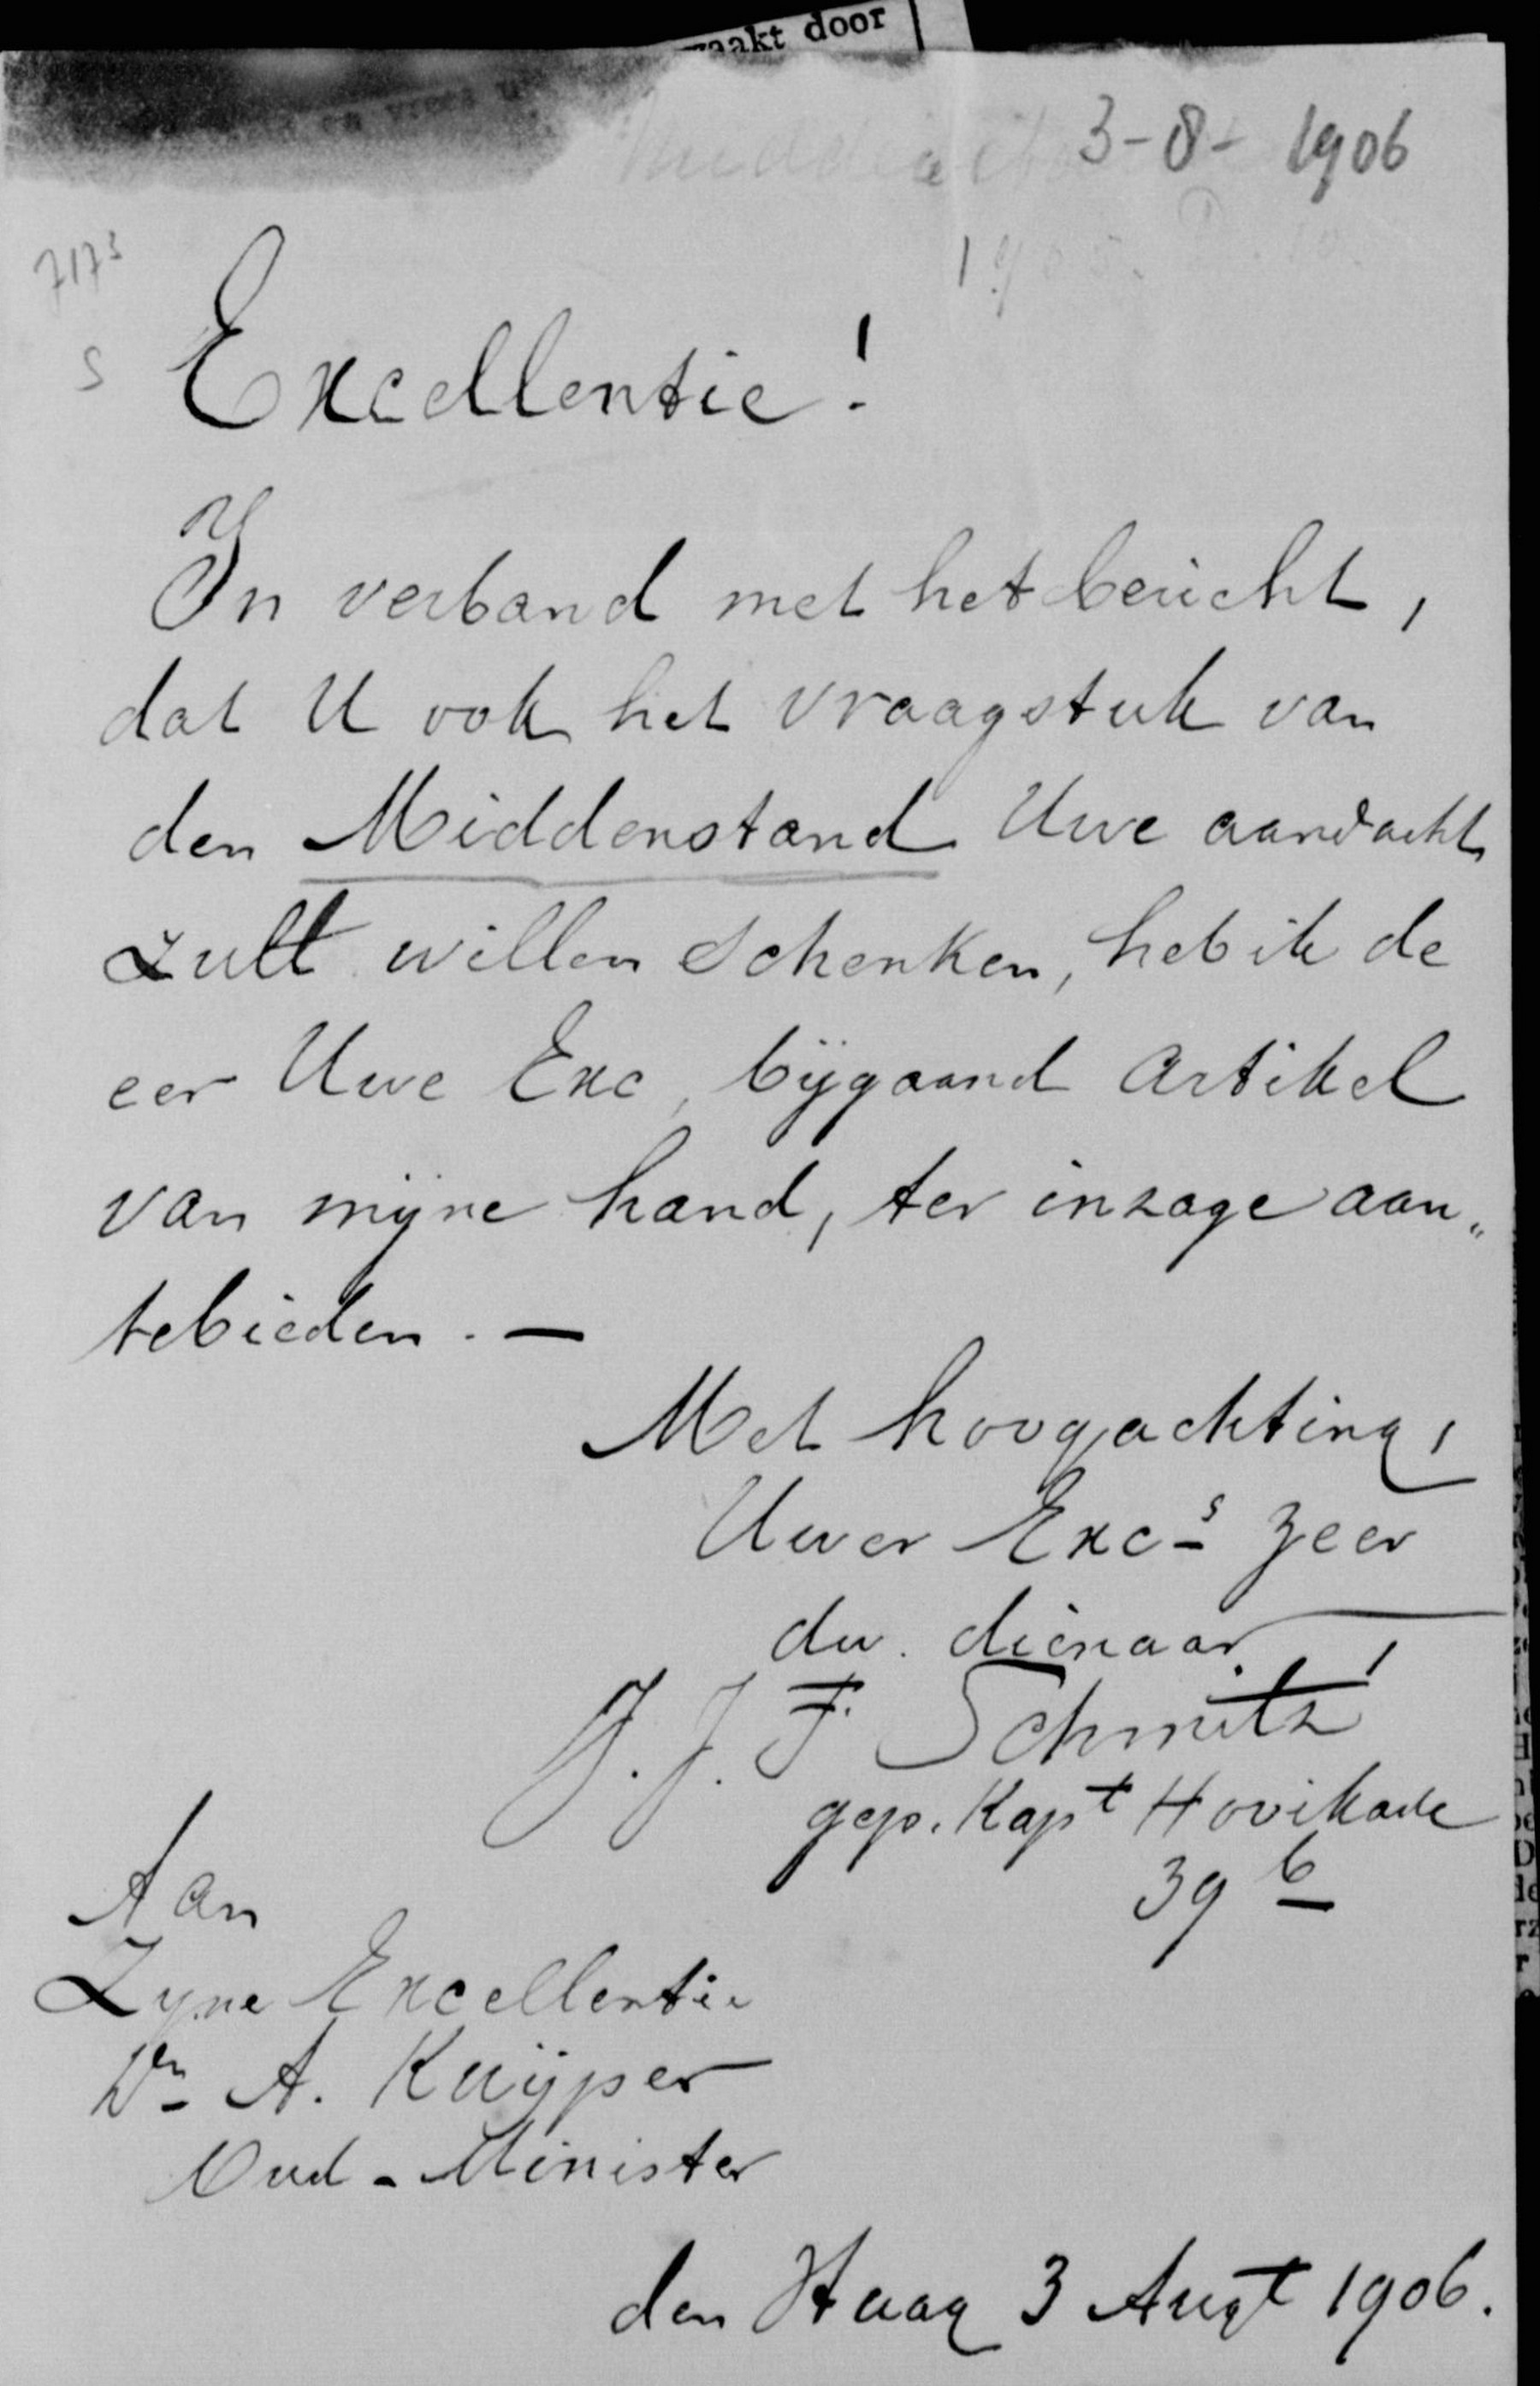 aakt door
3-8-1906
7173
S
Excellentie!
In verband met het bericht,
dat U ook het vraagstuk van
den Middenstand Uwe aandacht
zult willen schenken, heb ik de
eer Uwe Exc, bijgaand artikel
van mijne hand, ter inzage aan„
tebieden. —
Met hoogachting,
Uwer Excs zeer
dw. dienaar,
J. J. F. Schmitz
gep. Kapt Hovikade
39 b
Aan
Zyne Excellentie
Dr A. Kuÿper
Oud-Minister
den Haag 3 Augt 1906.